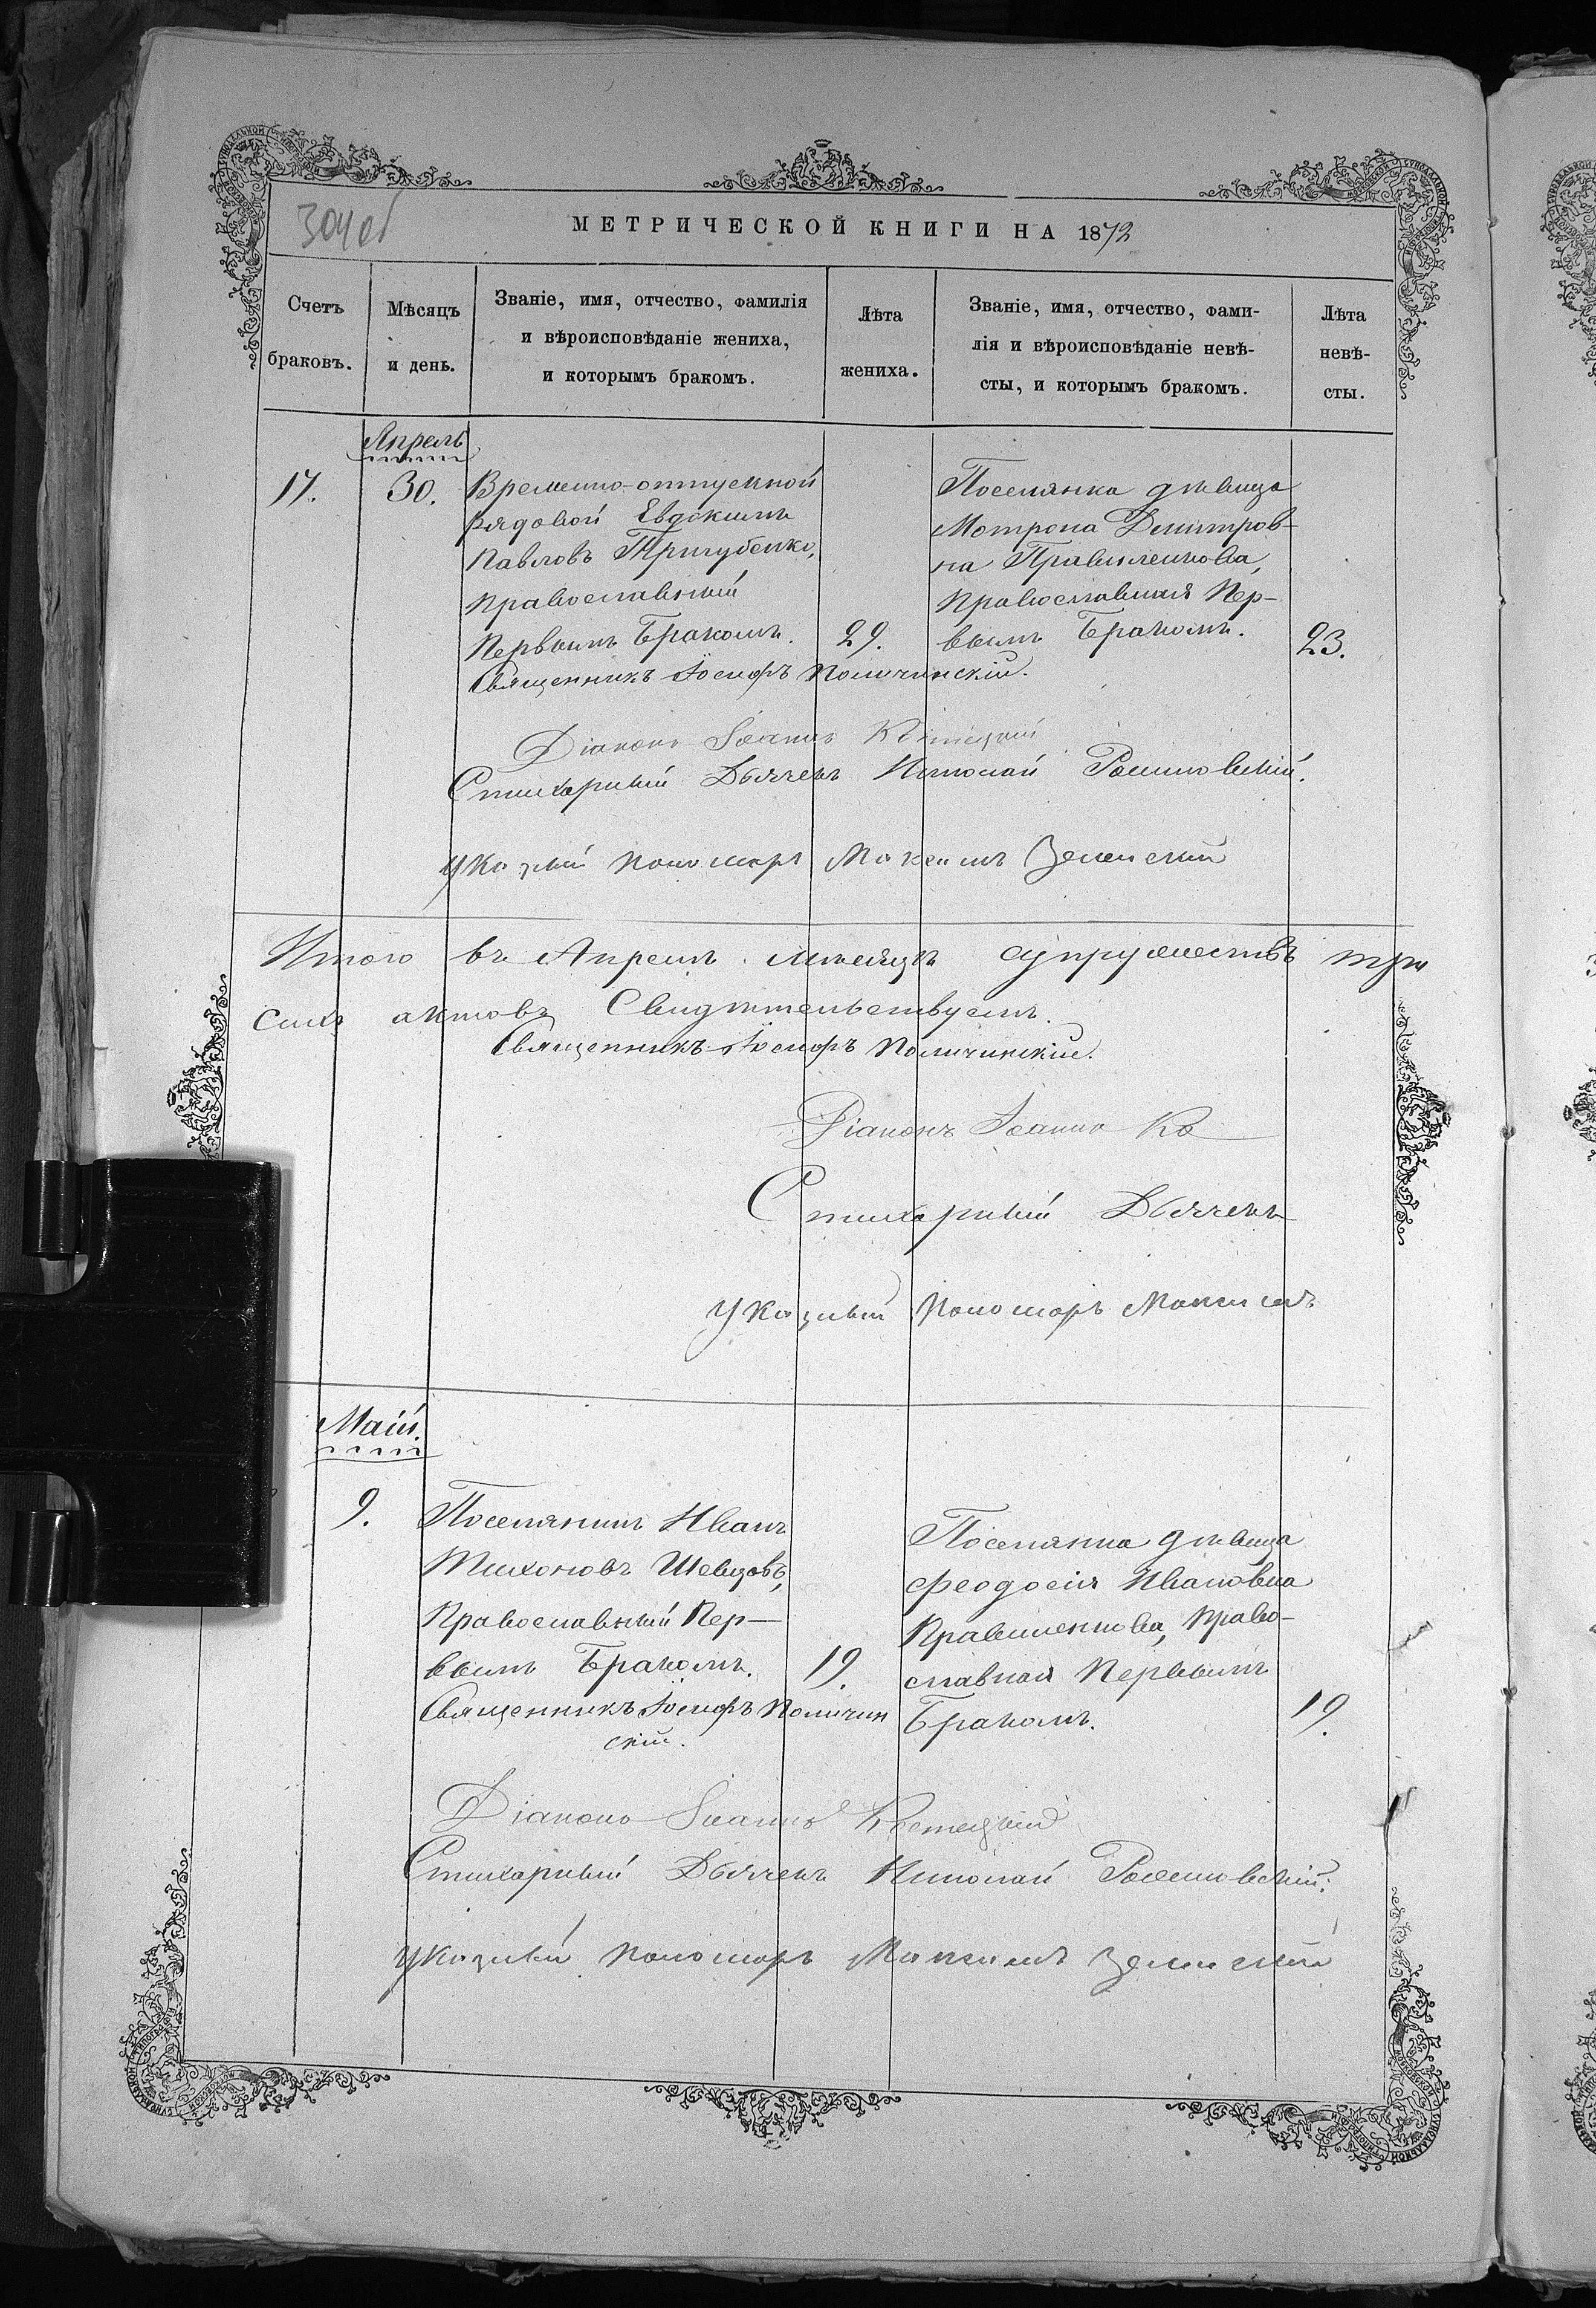 304об
МЕТРИЧЕСКОЙ КНИГИ НА 1872
Счетъ браковъ.
Мѣсяцъ и день.
Званіе, имя, отчество, фамилія
и вѣроисповѣданіе жениха,
и которымъ бракомъ.
Лѣта жениха.
Званіе, имя, отчество, фами-
лія и вѣроисповѣданіе невѣ-
сты, и которымъ бракомъ.
Лѣта невѣ-
сты.
Апрель
17.
30.
Временно-отпускной
рядовой Евдокимъ
Павловъ Тригубенко,
Православный
Первымъ Бракомъ.
29.
Поселянка дѣвица
Мотрона Димитров-
на Правиленкова,
Православная Пер-
вымъ Бракомъ.
23.
Священникъ Іосифъ Поличинскій.
Діаконъ Іоаннъ
Стихарный Дьячекъ Николай
Указный Пономарь Максимъ Зелинскій
Итого въ Апрелѣ мѣсяцѣ супружествъ три
сихъ актовъ Свидѣтельствуемъ.
Священникъ Іосифъ Поличинскій.
Діаконъ Іоаннъ Ко
Стихарный Дьячекъ
Указный Пономарь Максимъ
Маій.
9.
Поселянинъ Иванъ
Тихоновъ Шевцовъ,
Православный Пер-
вымъ Бракомъ.
19.
Поселянка дѣвица
Феодосія Ивановна
Правиленкова, Право-
славная Первымъ
Бракомъ.
19.
Священникъ Іосифъ Поличин
скій.
Діаконъ Іоаннъ
Стихарный Дьячекъ Николай
Указный Пономарь Максимъ Зелинскій